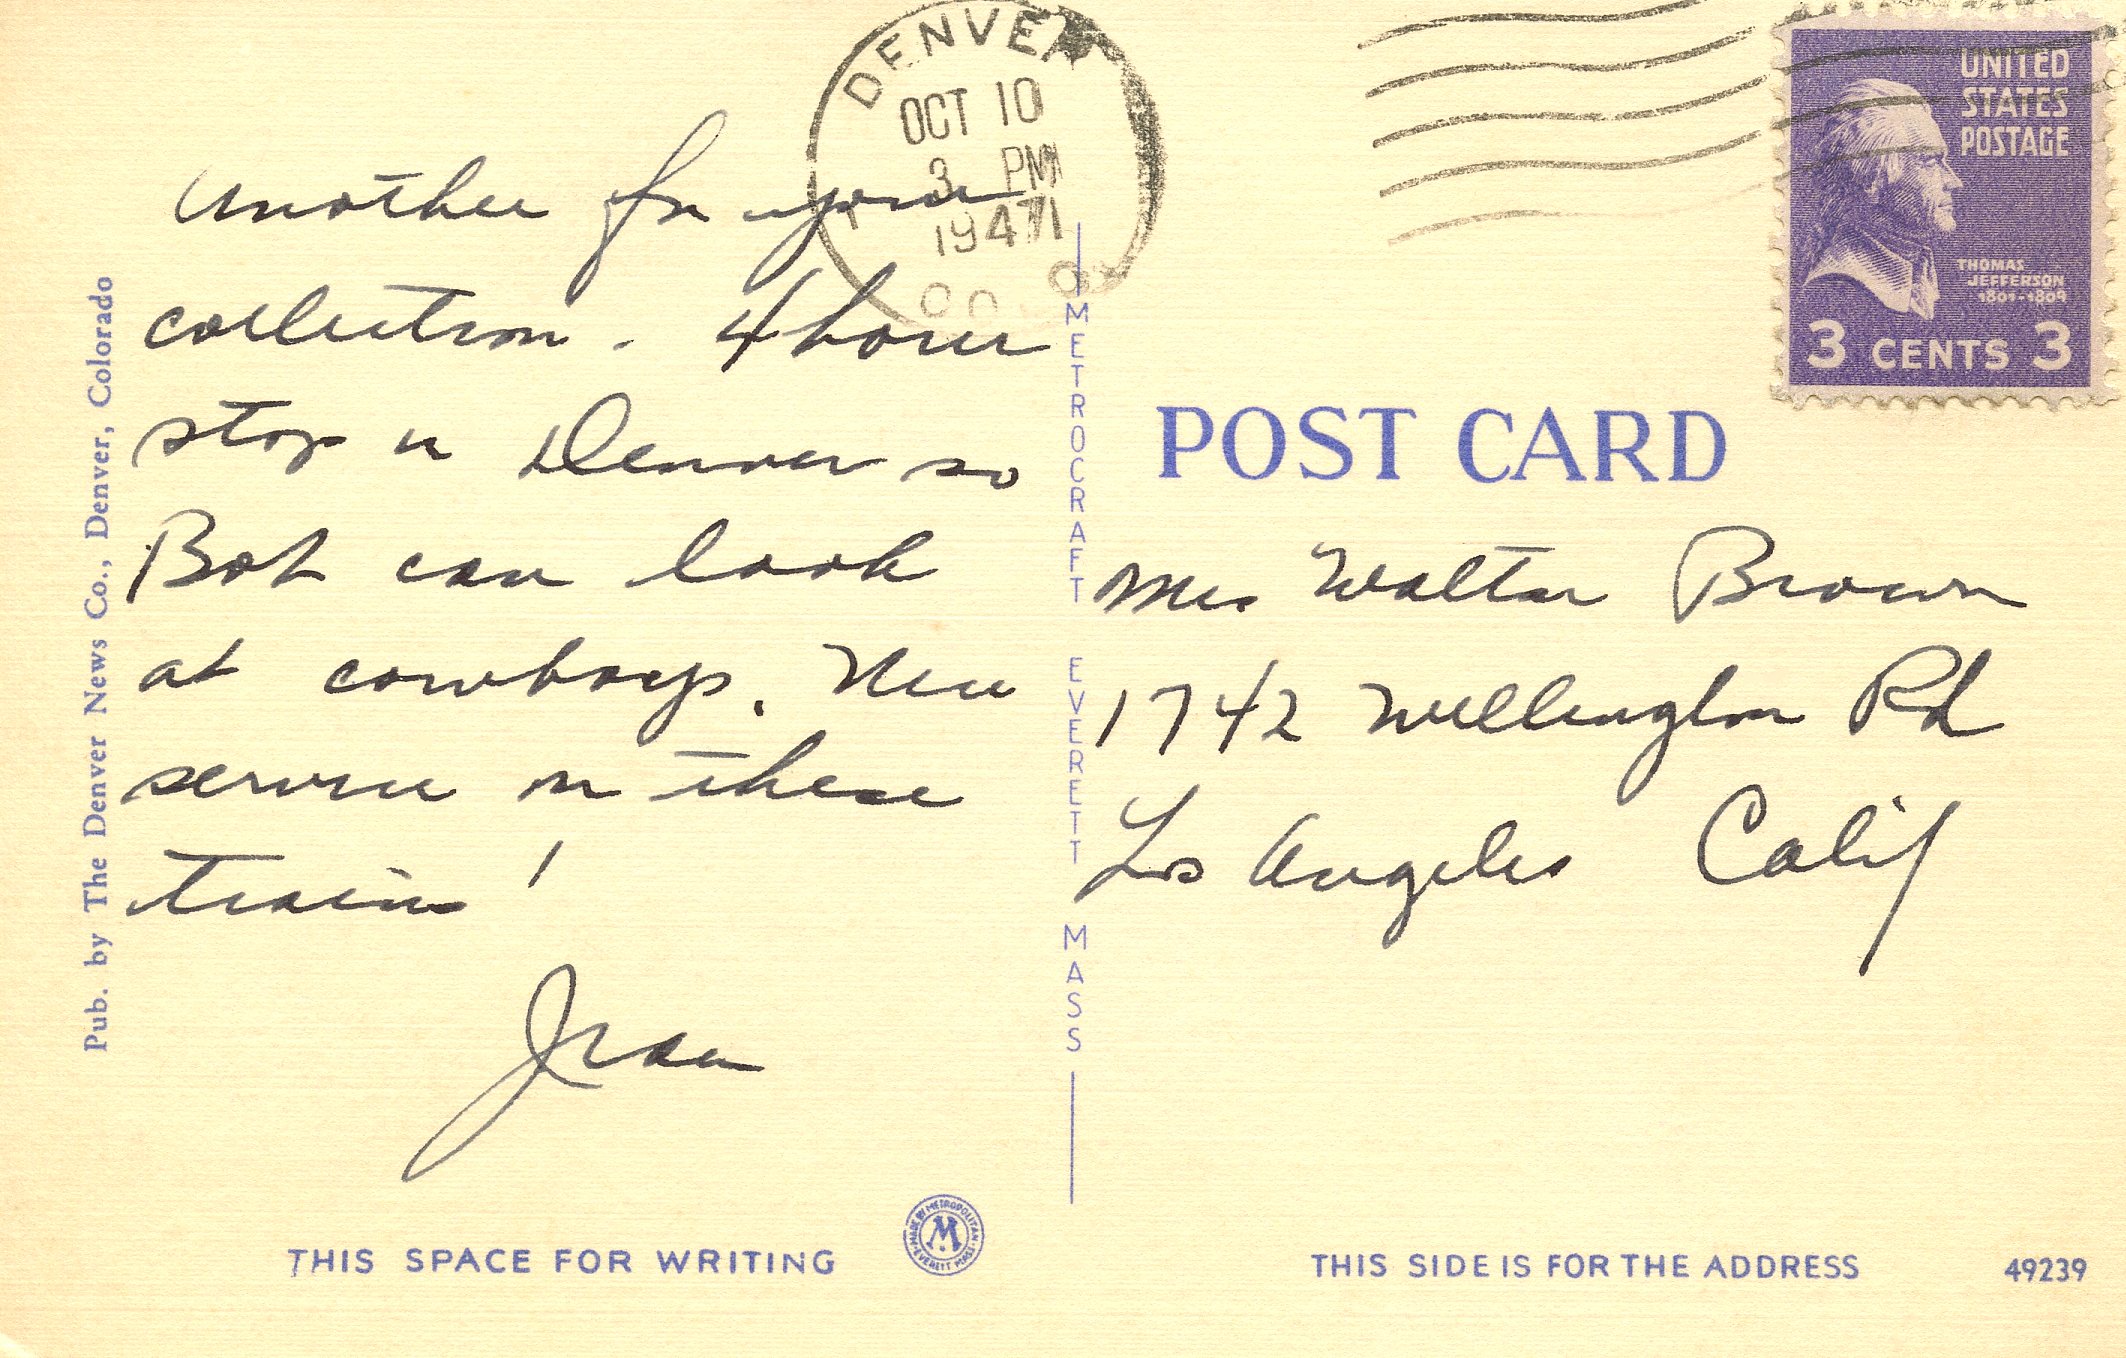 DENVER
OCT 10
3 PM
1947
COLO.
UNITED
STATES
POSTAGE
THOMAS
JEFFERSON
1801-1809
3 CENTS 3
Another for your
collection. 4 hour
stop in Denver so
Bob can look
at cowboys. New
service on these
trains!
Jean
Pub. by The Denver News Co., Denver, Colorado
METROCRAFT EVERETT MASS
POST CARD
Mrs Walter Brown
1742 Wellington Rd
Los Angeles Calif
THIS SPACE FOR WRITING
MADE BY METROPOLITAN
M
EVERETT MASS.
THIS SIDE IS FOR THE ADDRESS
49239